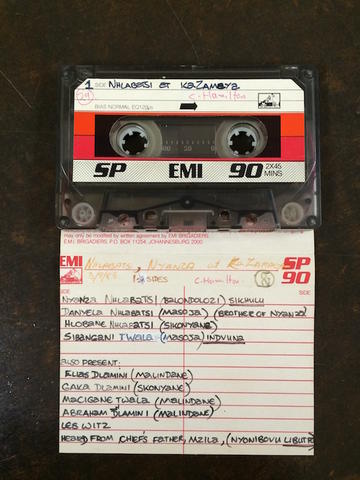 1 SIDE NHLABATSI at KAZAMEYA
29 C. Hamilton
BIAS NORMAL EQ120μs
100 50 0
SP EMI 90 2X45 MINS
may only be modified by written agreement by EMI BRIGADIERS.
E.M.I. BRIGADIERS, P.O. BOX 11254, JOHANNESBURG 2000
EMI NHLABATSI, NYANZA at KAZAMEYA SP
SIDES C. Hamilton 90
SIDE SIDE
NYANZA NHLABATSI (BALONDOLOZI) SIKHULU
DANYELA NHLABATSI (MASOJA) (BROTHER OF NYANZA)
HLOBANE NHLABATSI (SIKONYANE)
SIBANGANI TWALA (MASOJA) INDVUNA
ALSO PRESENT:
ELIAS DLAMINI (MALINDANE)
GAKA DLAMINI (SKONYANE)
MACIGANE TWALA (MALINDANE)
ABRAHAM DLAMINI (MALINDANE)
LES WITZ
HEARD FROM CHIEF'S FATHER, MZILA, (NYONIBOVU LIBUTFO)